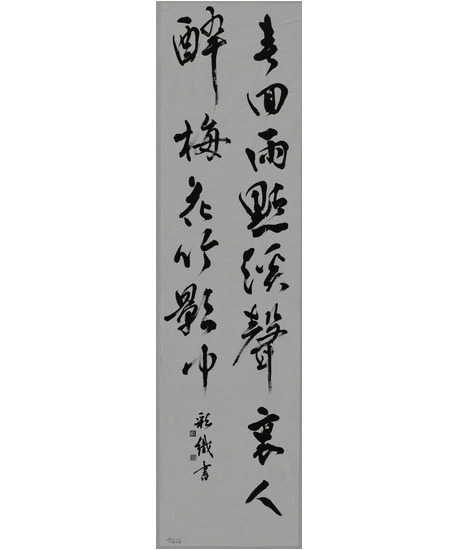 春回雨點溪聲裏人
醉梅花竹影中
彩織書